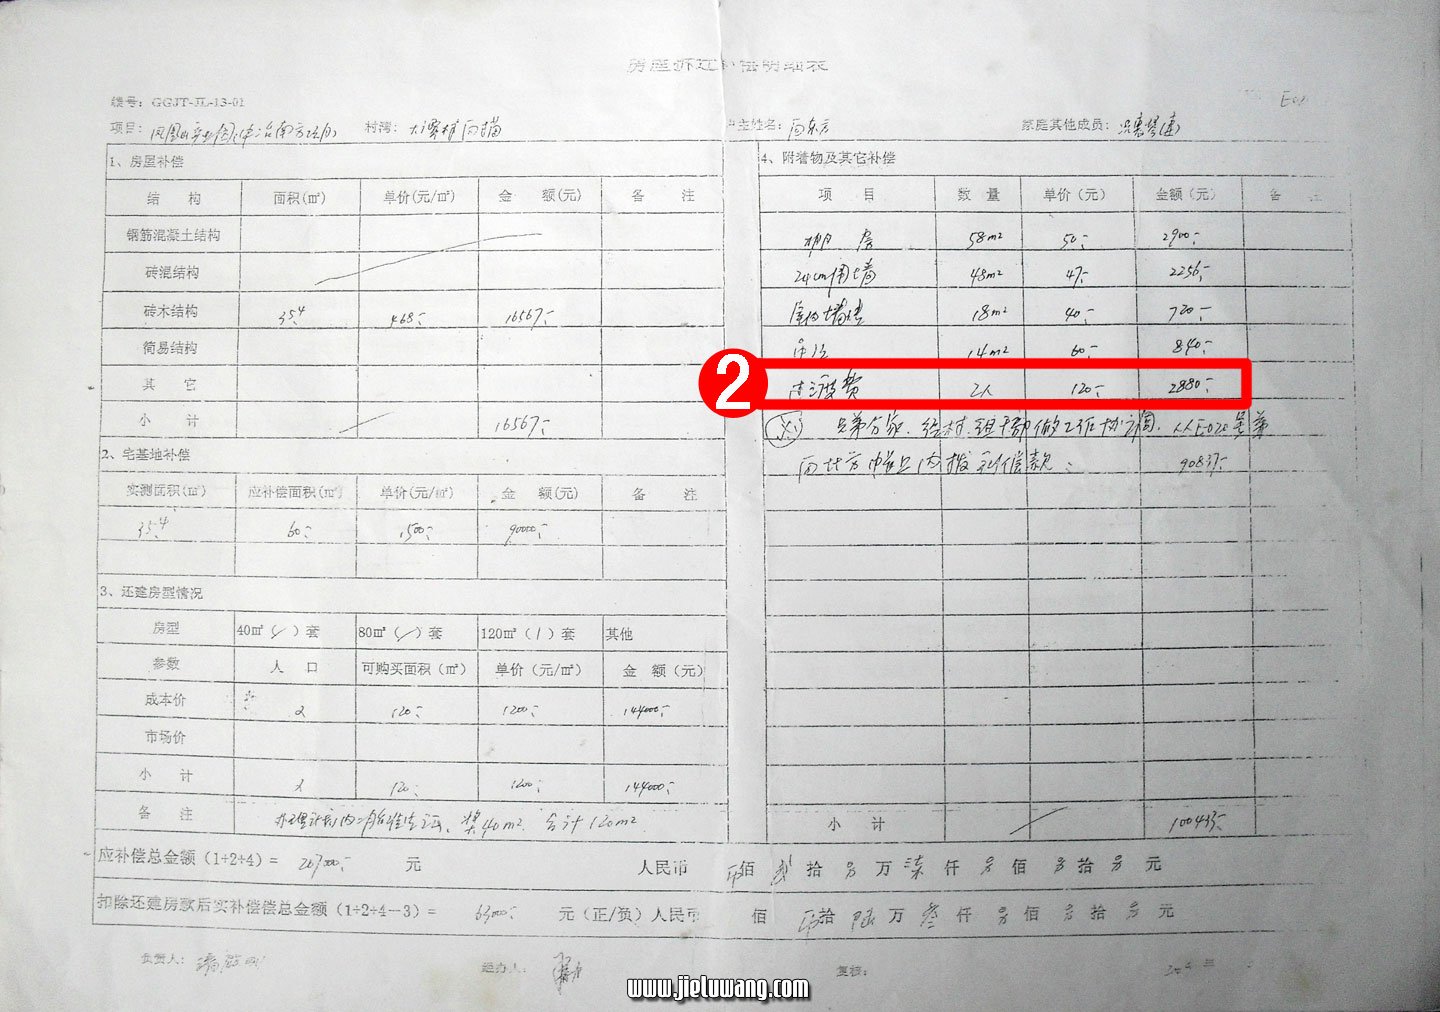 房屋拆迁补偿明细表
编号：GGJT-JL-13-01
项目：
村湾：
户主姓名：
家庭其他成员：
1、房屋补偿
结 构 面积(㎡) 单价(元/㎡) 金 额(元) 备 注
钢筋混凝土结构
砖混结构
砖木结构 35.4 468 16567
简易结构
其 它
小 计 16567
2、宅基地补偿
实测面积(㎡) 应补偿面积(㎡) 单价(元/㎡) 金 额(元) 备 注
35.4 60 1500 90000
3、还建房型情况
房型 40㎡( )套 80㎡( )套 120㎡(1)套 其他
参数 人 口 可购买面积(㎡) 单价(元/㎡) 金 额(元)
成本价 2 120 1200 144000
市场价
小 计 2 120 1200 144000
备 注 奖40m² 合计120m²
4、附着物及其它补偿
项 目 数 量 单价(元) 金额(元) 备 注
棚房 58m² 50 2900
24cm围墙 48m² 47 2256
18m² 40 720
14m² 60 840
2 过渡费 2人 120 2880
兄弟分家、经村、组干部做工作协调、从E020
补偿款 90837
小 计 100433
应补偿总金额(1+2+4)= 207000 元 人民币 佰 贰 拾 零 万 柒 仟 零 佰 零 拾 零 元
扣除还建房款后实补偿偿总金额(1+2+4--3)= 63000 元(正/负)人民币 佰 拾 陆 万 叁 仟 零 佰 零 拾 零 元
负责人：
经办人：
复核：
年
www.jieluwang.com